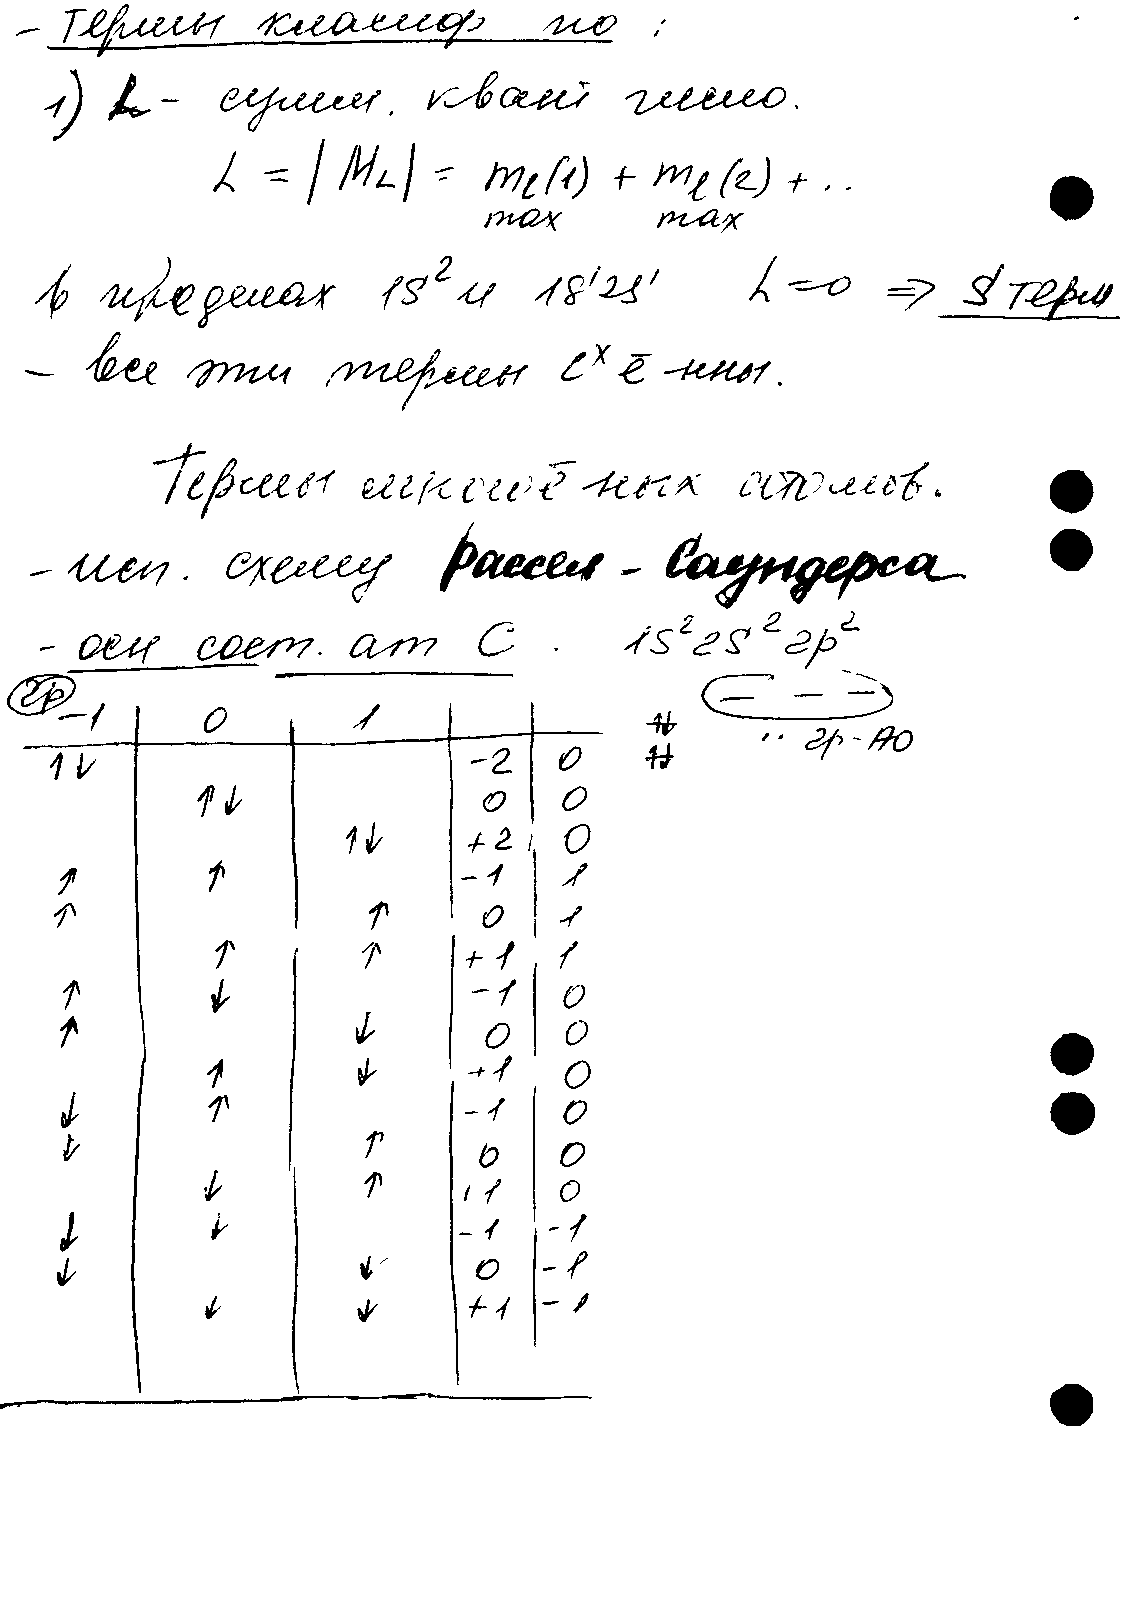 - Термы классиф по :
1) L - сумм. квант число.
L = |M_L| = m_l(1) + m_l(2) + ..
max max
в пределах 1S² и 1S¹2S¹ L=0 ⇒ S терм
- все эти термы с^х ē-нны.
Термы многоē ных атомов.
- исп. схему Рассел - Саундерса
- осн сост. ат С . 1S²2S²2p²
2p
-1 | 0 | 1 | | ⇅ — — —
↑↓ | | | -2 | 0 ⇅ .. 2p-АО
 | ↑↓ | | 0 | 0
 | | ↑↓ | +2 | 0
↑ | ↑ | | -1 | 1
↑ | | ↑ | 0 | 1
 | ↑ | ↑ | +1 | 1
↑ | ↓ | | -1 | 0
↑ | | ↓ | 0 | 0
 | ↑ | ↓ | +1 | 0
↓ | ↑ | | -1 | 0
↓ | | ↑ | 0 | 0
 | ↓ | ↑ | +1 | 0
↓ | ↓ | | -1 | -1
↓ | | ↓ | 0 | -1
 | ↓ | ↓ | +1 | -1